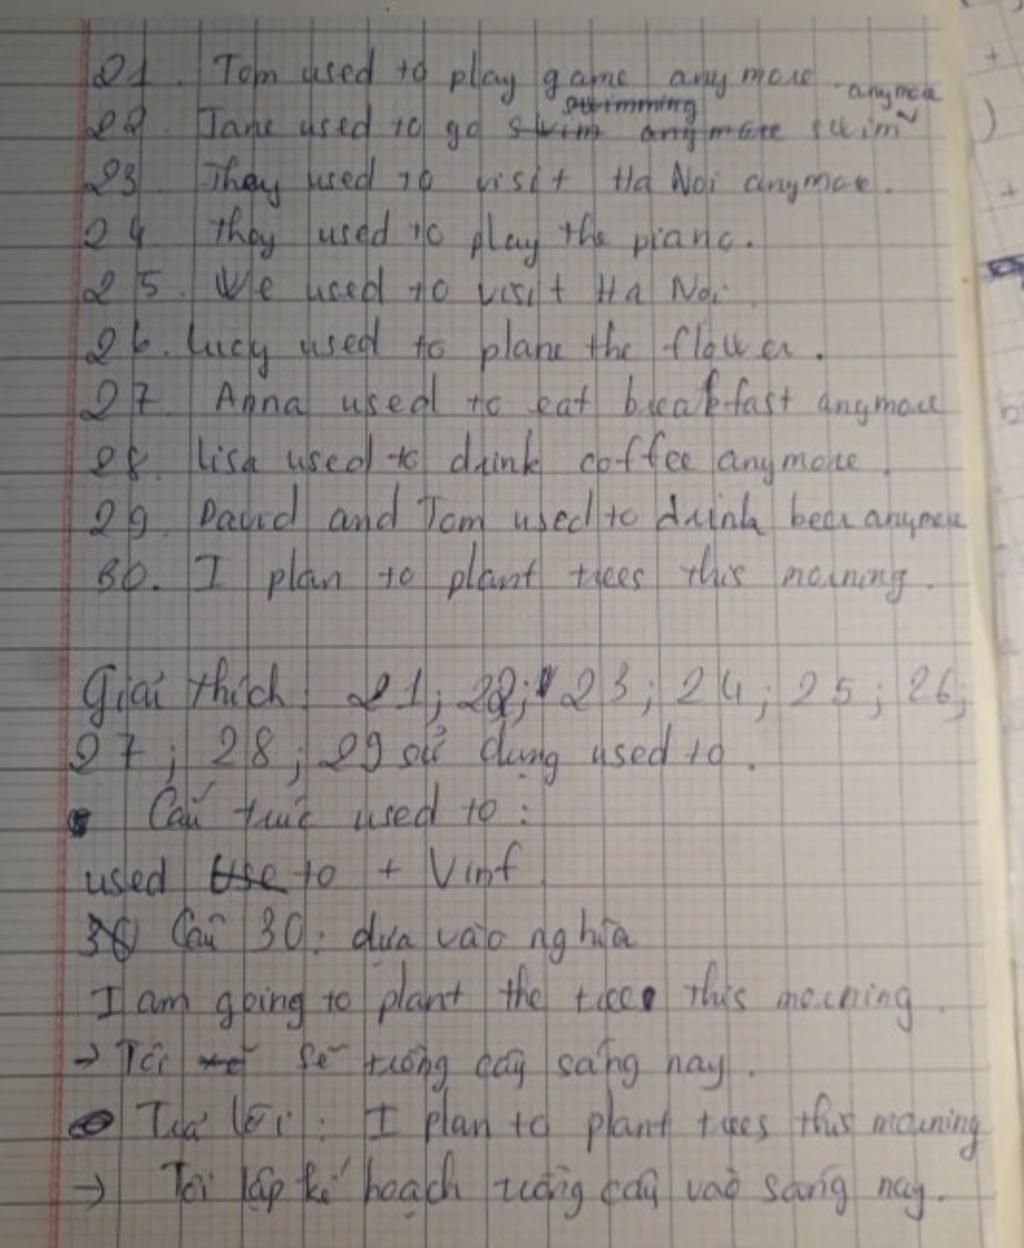 21. Tom used to play game any more
22. Jane used to go swim anymore
23 They used to visit Ha Noi anymore.
24 they used to play the piano.
25. We used to visit Ha Noi
26. Lucy used to plane the flower.
27 Anna used to eat breakfast anymore
28. Lisa used to drink coffee anymore.
29. David and Tom used to drink beer anymore
30. I plan to plant trees this morning.
Giải thích: 21; 22; 23; 24; 25; 26;
27; 28; 29 sử dụng used to.
Cấu trúc used to:
used to + Vinf
Câu 30: dựa vào nghĩa
I am going to plant the tree this morning.
→ Tôi sẽ trồng cây sáng nay.
Trả lời: I plan to plant trees this morning
→ Tôi lập kế hoạch trồng cây vào sáng nay.